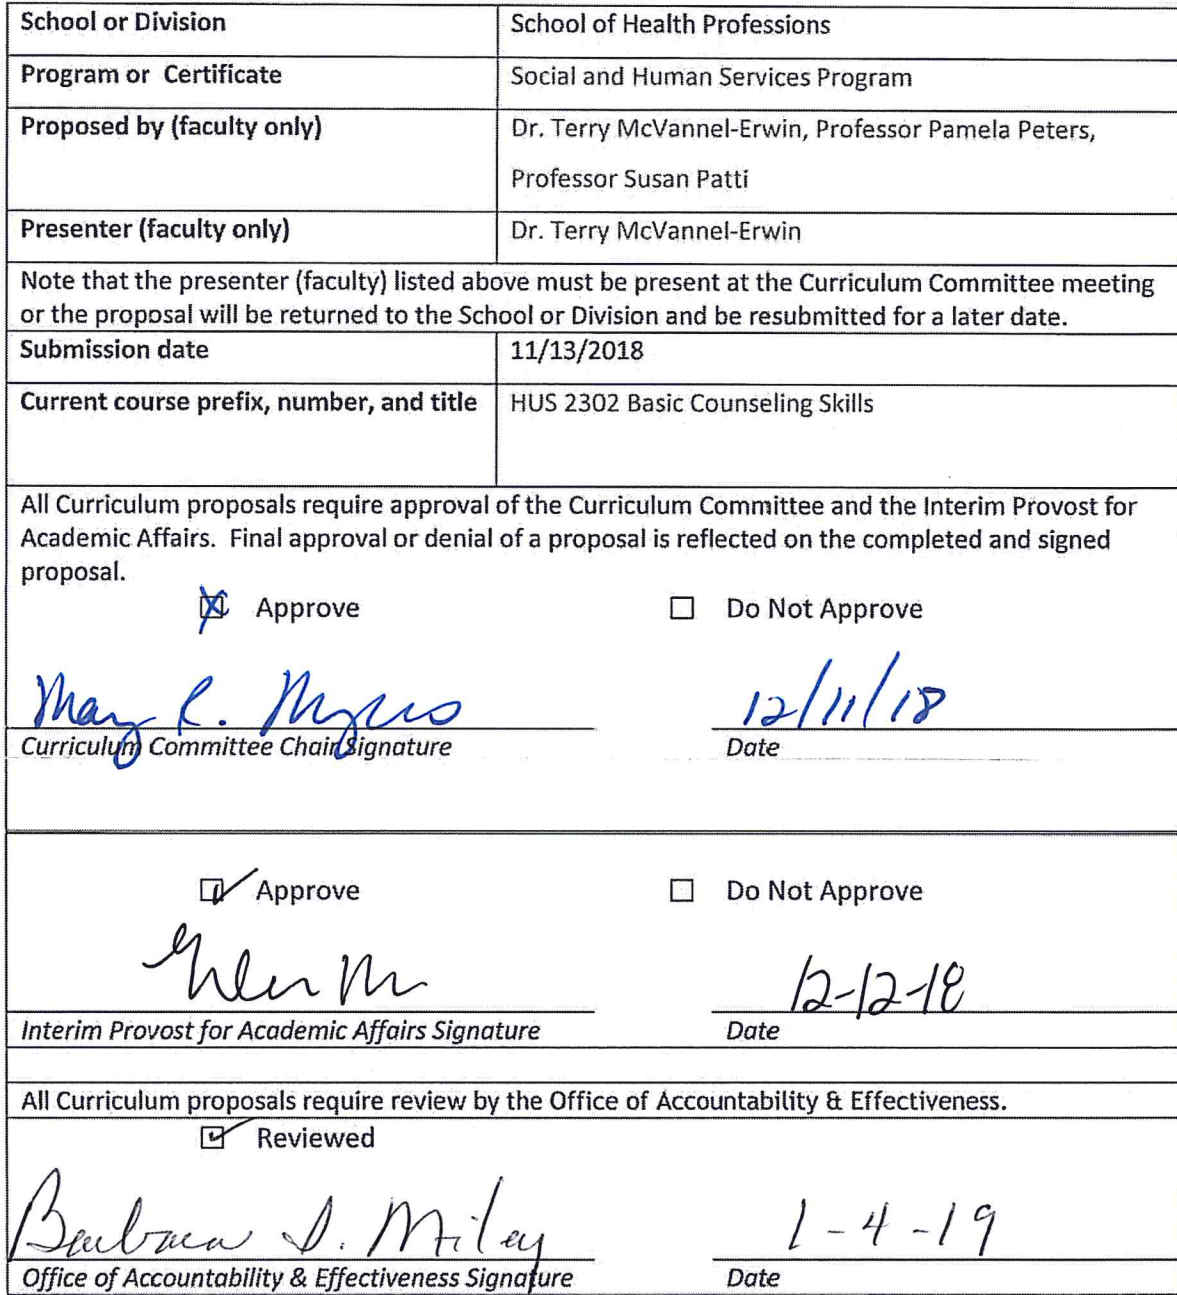 School or Division School of Health Professions
Program or Certificate Social and Human Services Program
Proposed by (faculty only) Dr. Terry McVannel-Erwin, Professor Pamela Peters,
Professor Susan Patti
Presenter (faculty only) Dr. Terry McVannel-Erwin
Note that the presenter (faculty) listed above must be present at the Curriculum Committee meeting
or the proposal will be returned to the School or Division and be resubmitted for a later date.
Submission date 11/13/2018
Current course prefix, number, and title HUS 2302 Basic Counseling Skills
All Curriculum proposals require approval of the Curriculum Committee and the Interim Provost for
Academic Affairs. Final approval or denial of a proposal is reflected on the completed and signed
proposal.
☒ Approve ☐ Do Not Approve
Mary R. Myers 12/11/18
Curriculum Committee Chair Signature Date
☑ Approve ☐ Do Not Approve
12-12-18
Interim Provost for Academic Affairs Signature Date
All Curriculum proposals require review by the Office of Accountability & Effectiveness.
☑ Reviewed
Barbara D. Miley 1-4-19
Office of Accountability & Effectiveness Signature Date